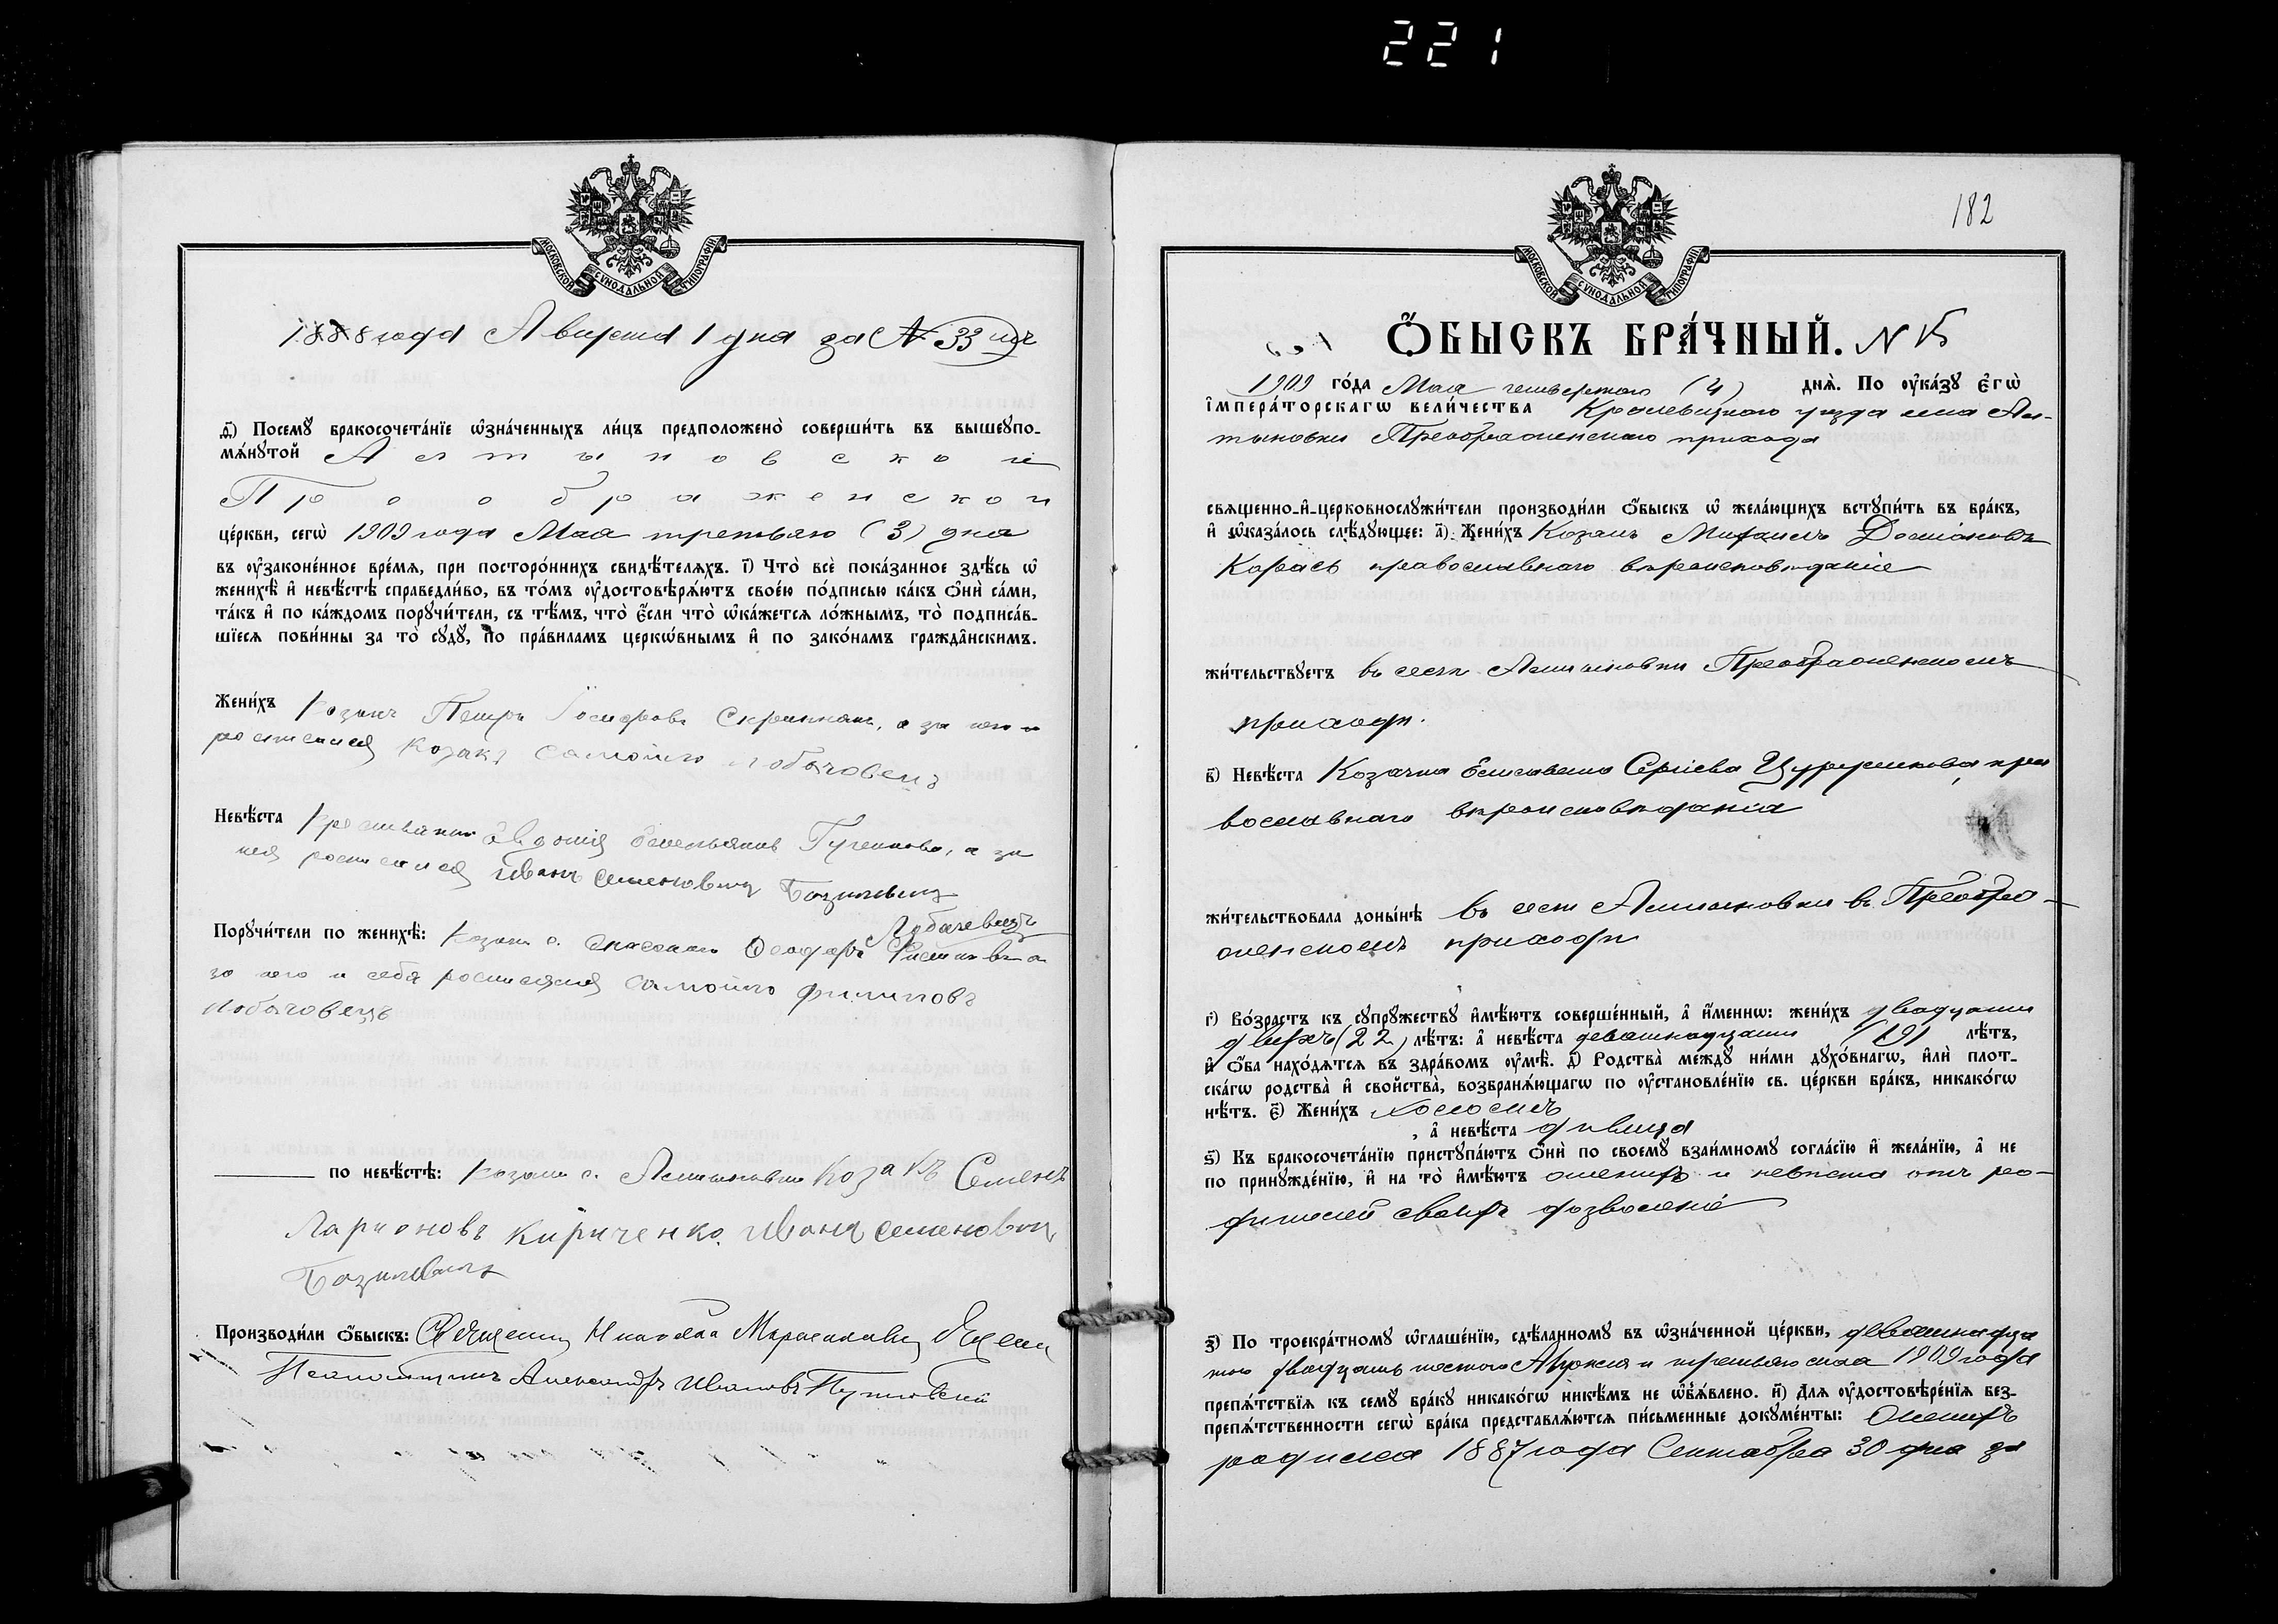 221
МОСКОВСКОЙ СѴНОДАЛЬНОЙ ТИПОГРАФІИ
1888 года Августа 1 дня за № 33 мъ
д҃) Посемꙋ бракосочета́нїе ѡ҆зна́ченныхъ ли́цъ предположено̀ соверши́ть въ вышеꙋпо-
мѧ́нꙋтой Алтыновской
Преображенской
це́ркви, сегѡ̀ 1909 года Мая третьяго (3) дня
въ ᲂу҆зако́ненное вре́мѧ, при посторо́ннихъ свидѣ́телѧхъ. і҃) Что̀ всѐ пока́занное здѣ́сь ѡ҆
женихѣ̀ и҆ невѣ́стѣ справедли́во, въ то́мъ ᲂу҆достовѣрѧ́ютъ свое́ю по́дписью ка́къ ѻ҆нѝ са́ми,
та́къ и҆ по ка́ждомъ порꙋчи́тели, съ тѣ́мъ, что̀ є҆́сли что̀ ѡ҆ка́жетсѧ ло́жнымъ, то̀ подписа́в-
шїесѧ пови́нны за то̀ сꙋдꙋ̀, по пра́виламъ церкѡ́внымъ и҆ по зако́намъ гражда̑нскимъ.
Жени́хъ Козакъ Петръ Скрипка, а за него
росписался Козакъ Самойло Лобычовецъ
Невѣ́ста Евдокія Емельянова Гученкова, а за
нея росписался Иванъ Семеновичъ Базилевичъ
Порꙋчи́тели по женихѣ̀: Козакъ с. Спасскаго Феодоръ
за него и себя росписался Самойло Филиповъ
Лобычовецъ
по невѣ́стѣ: Козаки с. Алтыновки Козакъ Семенъ
Ларионовъ Кириченко. Иванъ Семеновичъ
Базилевичъ
Производи́ли ѻ҆́быскъ: Священникъ Николай
Псаломщикъ Александръ Ивановъ Путовскій
182
МОСКОВСКОЙ СѴНОДАЛЬНОЙ ТИПОГРАФІИ
Ѻ҆́БЫСКЪ БРА́ЧНЫЙ. №
1909 го́да Мая четвертаго (4) днѧ̀. По ᲂу҆ка́зꙋ є҆гѡ̀
і҆мпера́торскагѡ вели́чества Кролевецкаго уѣзда села Ал-
тыновки Преображенскаго прихода
свѧщенно-и҆-церковнослꙋжи́тели производи́ли ѻ҆́быскъ ѡ҆ жела́ющихъ встꙋпи́ть въ бра́къ,
и҆ ѡ҆каза́лось слѣ́дꙋющее: а҃) Жени́хъ Козакъ Михаилъ Даміановъ
Карась православнаго вѣроисповѣданія
жи́тельствꙋетъ въ селѣ Алтыновки Преображенскомъ
приходѣ.
в҃) Невѣ́ста Козачка Елисавета Сергіева пра
вославнаго вѣроисповѣданія
жи́тельствовала доны́нѣ въ селѣ Алтыновки въ Преобра-
женскомъ приходѣ
г҃) Во́зрастъ къ сꙋпрꙋ́жествꙋ и҆мѣ́ютъ соверше́нный, а҆ и҆́менно: жени́хъ двадцати
двухъ (22) лѣ́тъ: а҆ невѣ́ста девятнадцати (19) лѣ́тъ,
и҆ ѻ҆́ба нахо́дѧтсѧ въ здра́вомъ ᲂу҆мѣ̀. д҃) Родства̀ междꙋ̀ ни́ми дꙋхо́внагѡ, и҆лѝ плот-
ска́гѡ родства̀ и҆ сво́йства̀, возбранѧ́ющагѡ по ᲂу҆становле́нїю св. це́ркви бра́къ, никако́гѡ
нѣ́тъ. є҃) Жени́хъ холостъ
, а҆ невѣ́ста дѣвица
ѕ҃) Къ бракосочета́нїю пристꙋпа́ютъ ѻ҆нѝ по своемꙋ̀ взаи́мномꙋ согла́сїю и҆ жела́нїю, а҆ не
по принꙋжде́нїю, и҆ на то̀ и҆мѣ́ютъ женихъ и невѣста отъ ро-
дителей своихъ дозволеніе
з҃) По троекра́тномꙋ ѡ҆глаше́нїю, сдѣ́ланномꙋ въ ѡ҆зна́ченной це́ркви,
двадцать шестого Апрѣля и третьяго мая 1909 года
препѧ́тствїѧ къ семꙋ̀ бра́кꙋ никако́гѡ никѣ́мъ не ѡ҆б̾ѧ́влено. и҃) Длѧ ᲂу҆достовѣре́нїѧ без-
препѧ́тственности сегѡ̀ бра́ка представлѧ́ютсѧ пи́сьменные докꙋме́нты: Женихъ
родился 1887 года Сентября 30 дня за